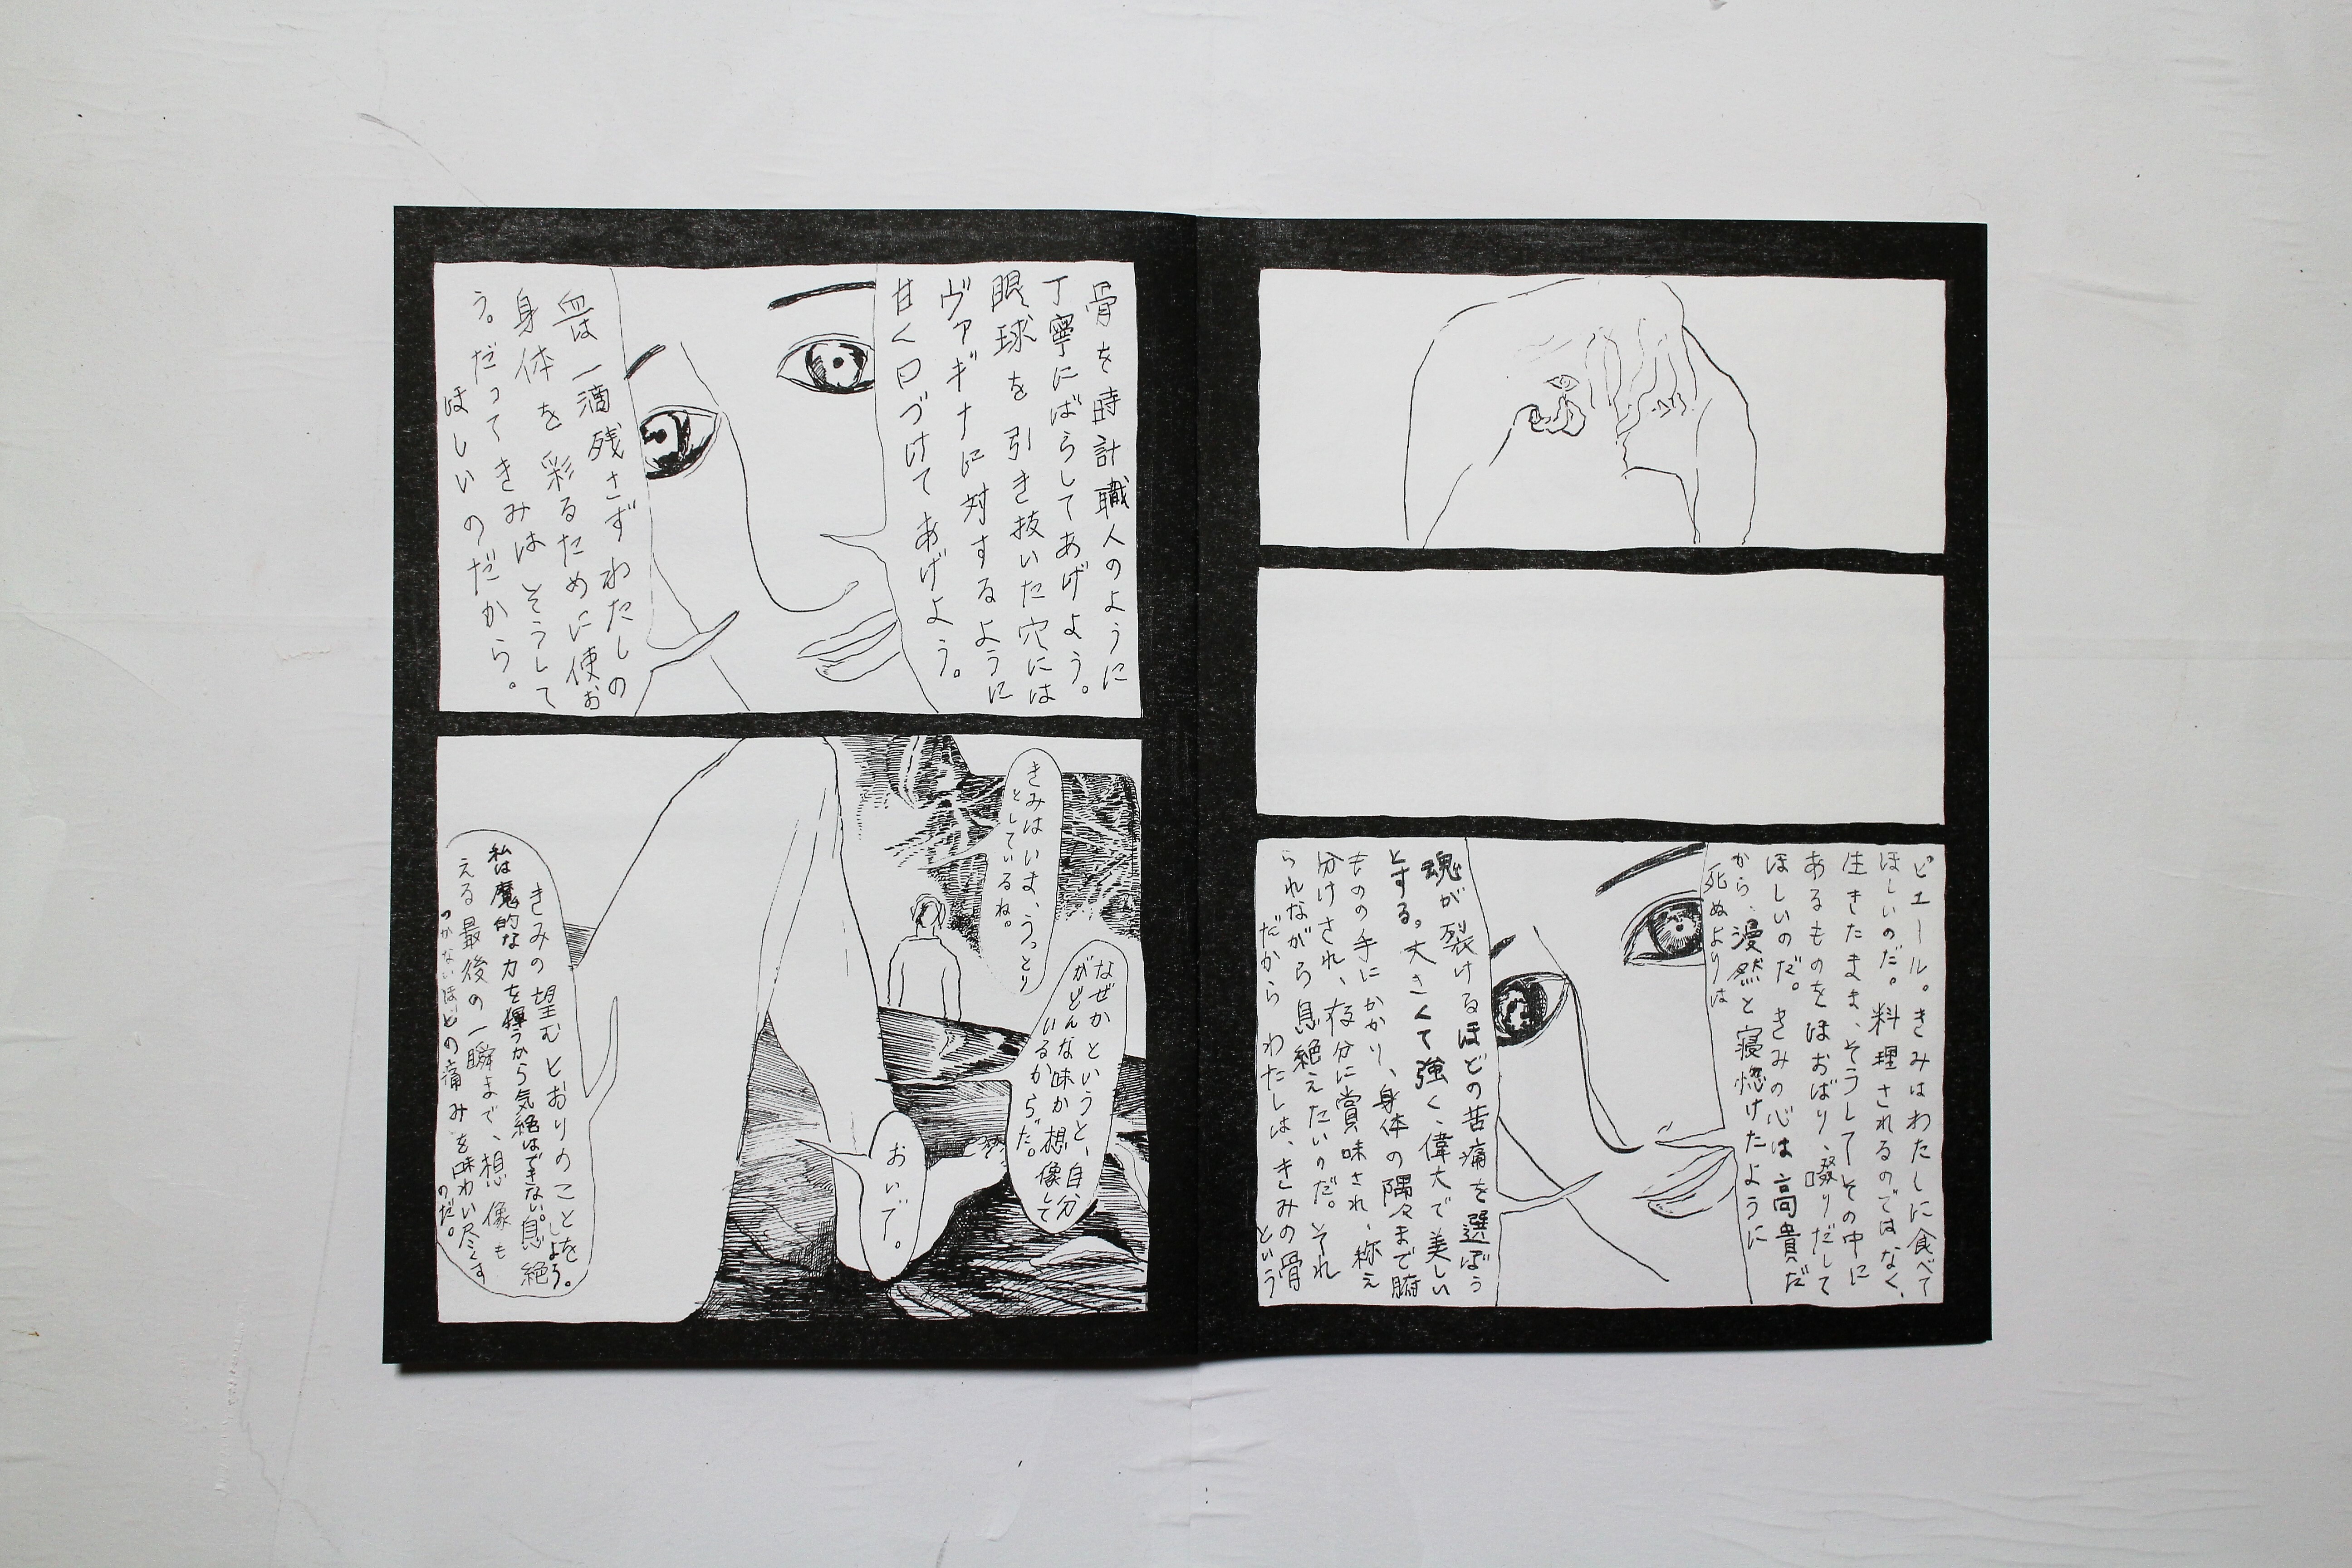 ピエール。きみはわたしに食べて
ほしいのだ。料理されるのではなく、
生きたまま、そうしてその中に
あるものをほおばり、啜りだして
ほしいのだ。きみの心は高貴だ
から、漫然と寝惚けたように
死ぬよりは
魂が裂けるほどの苦痛を選ぼう
とする。大きくて強く、偉大で美しい
ものの手にかかり、身体の隅々まで腑
分けされ、存分に賞味され、称え
られながら息絶えたいのだ。それ
だからわたしは、きみの骨
という
骨を時計職人のように
丁寧にばらしてあげよう。
眼球を引き抜いた穴には
ヴァギナに対するように
甘く口づけてあげよう。
血は一滴残さずわたしの
身体を彩るために使お
う。だってきみはそうして
ほしいのだから。
きみはいま、うっとり
としているね。
なぜかというと、自分
がどんな味か想像して
いるからだ。
おいで。
きみの望むとおりのことを
しよう。
私は魔的な力を揮うから気絶はできない。息絶
える最後の一瞬まで、想像も
つかないほどの痛みを味わい尽くす
のだ。